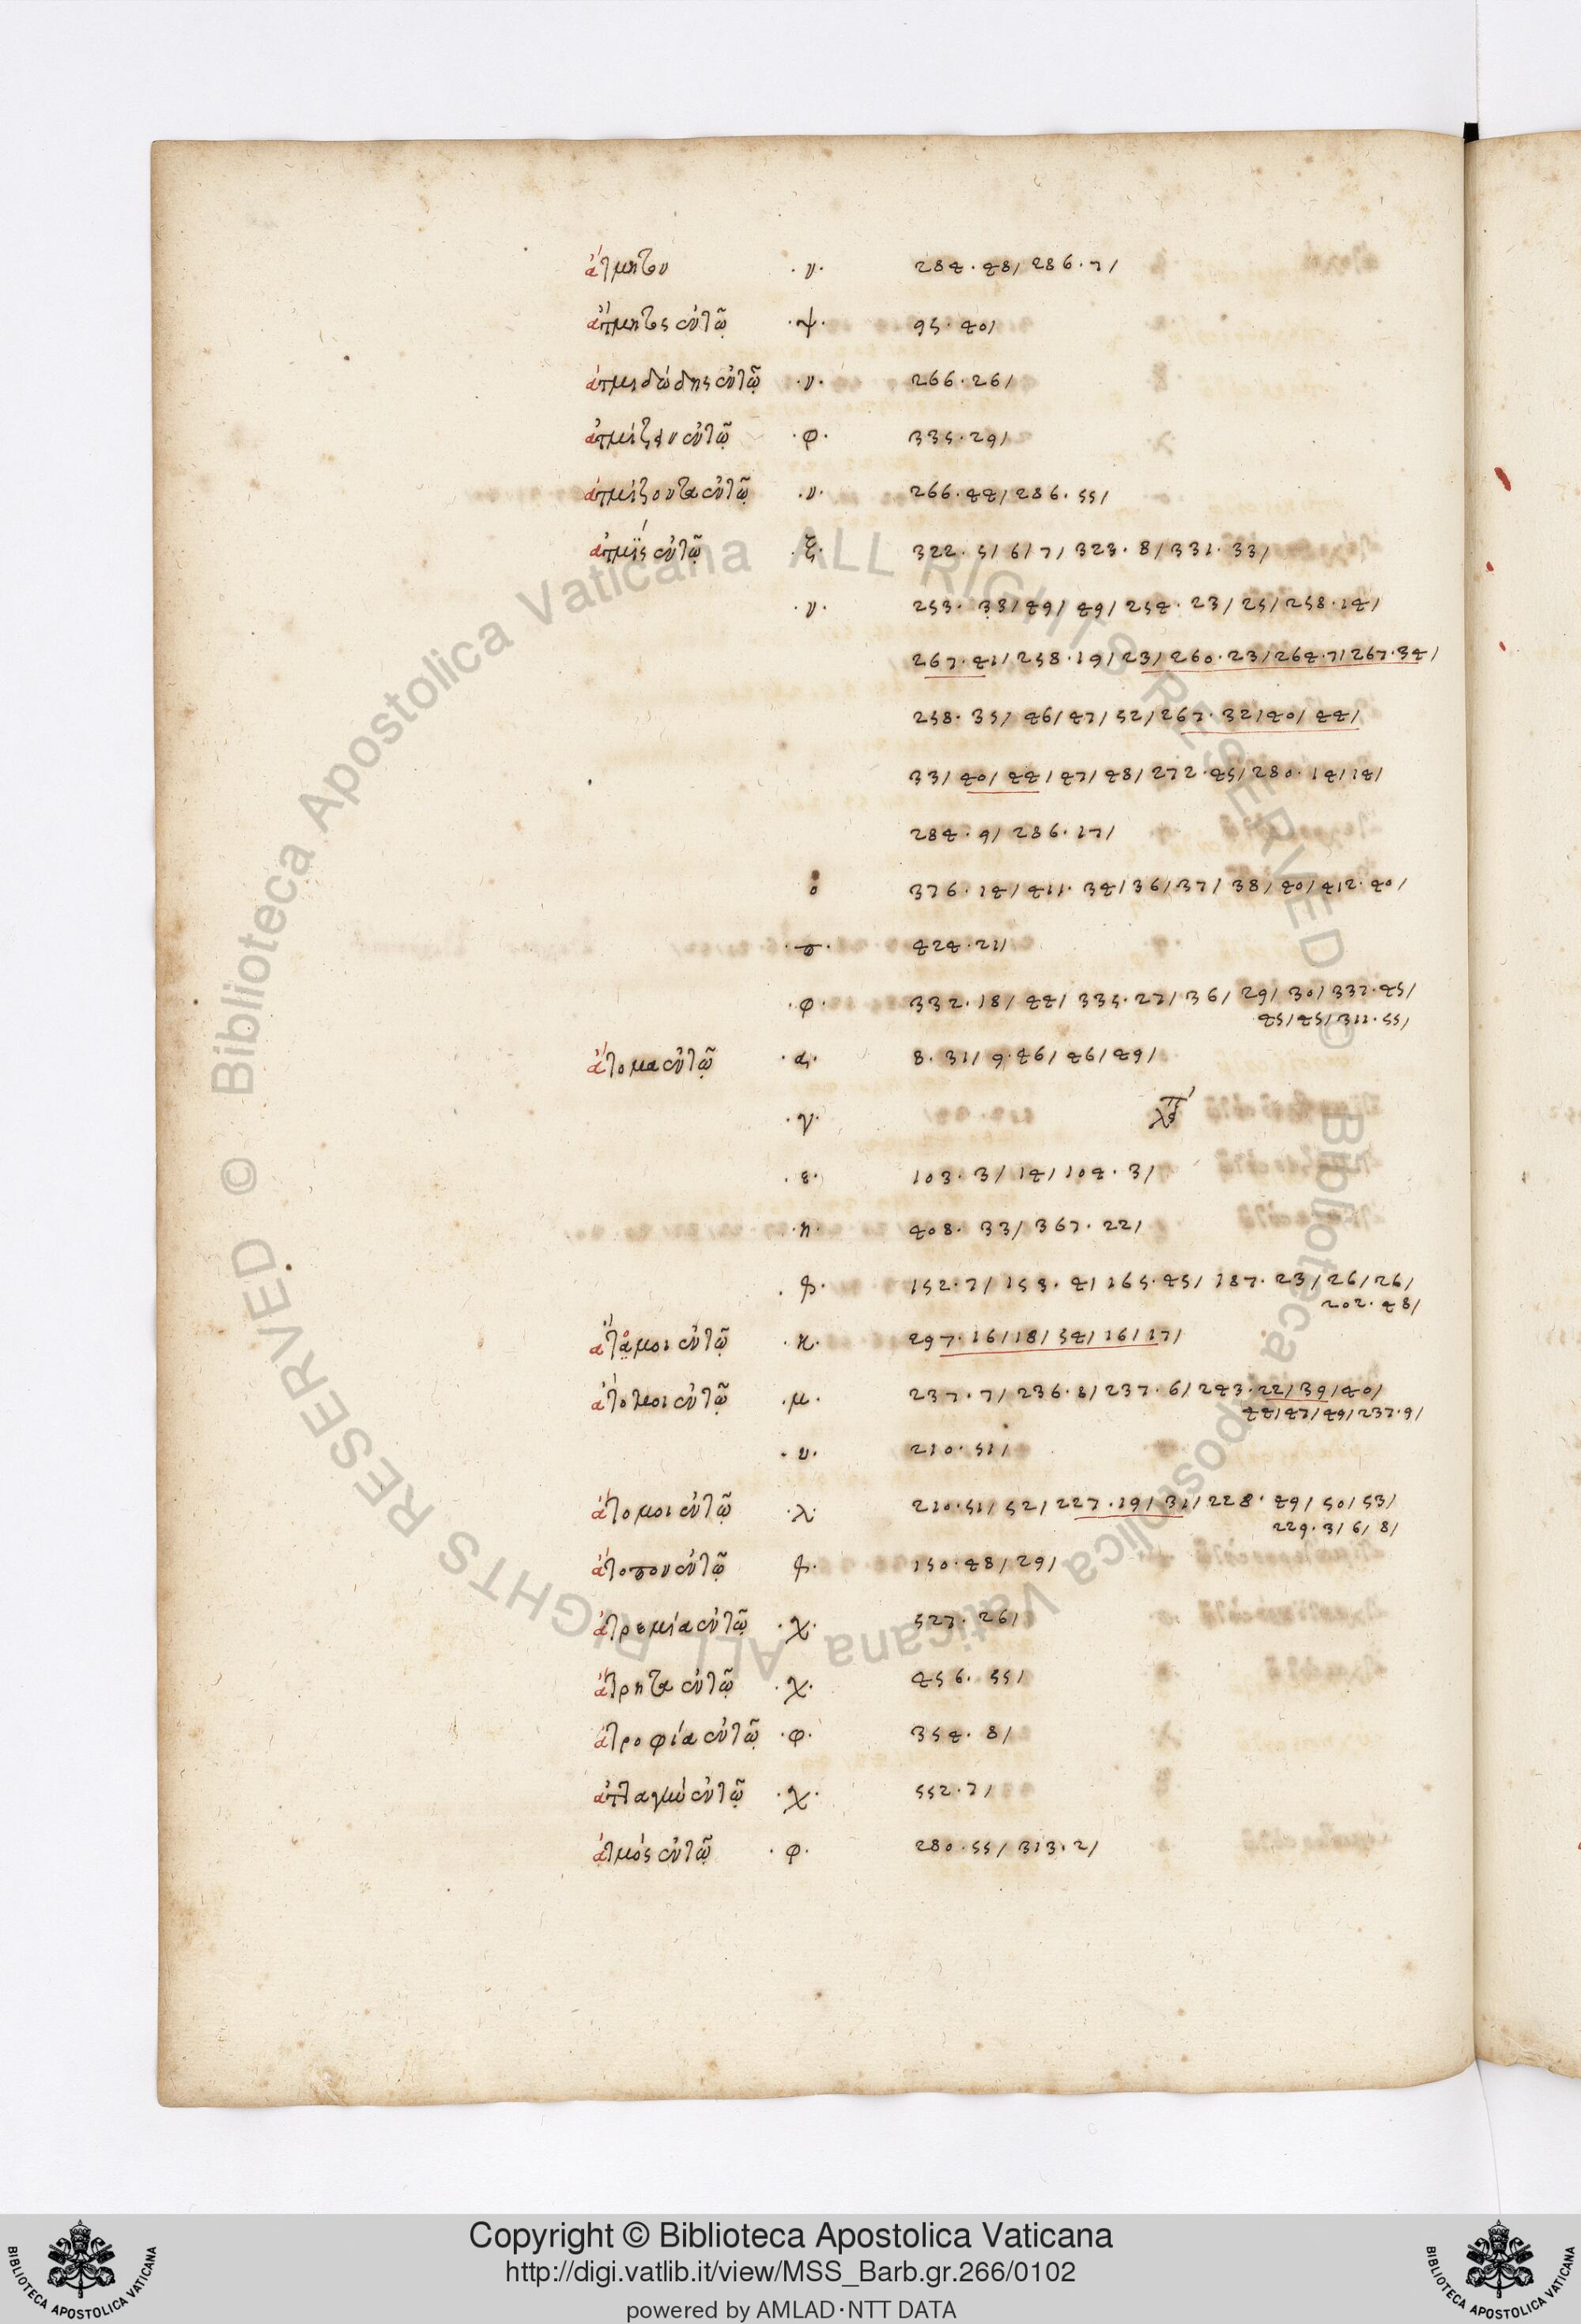 ἄτμητον ·ν· 284·48/ 286·7/
ἄτμητος αὐτῷ ·ψ· 95·40/
ἀτμιδώδης αὐτῷ ·ν· 266·26/
ἀτμίζειν αὐτῷ ·φ· 335·29/
ἀτμίζοντα αὐτῷ ·ν· 266·44/ 286·55/
ἀτμίς αὐτῷ ·ξ· 322·5/ 6/ 7/ 323·8/ 331·33/
·ν· 253·33/ 49/ 49/ 254·23/ 25/ 258·14/
267·41/ 258·19/ 23/ 260·23/ 264·7/ 267·34/
258·35/ 46/ 47/ 52/ 267·32/ 40/ 44/
33/ 40/ 44/ 47/ 48/ 272·45/ 280·14/ 14/
284·9/ 286·17/
ο 376·14/ 411·34/ 36/ 37/ 38/ 40/ 412·40/
424·21/
·φ· 332·18/ 44/ 335·27/ 36/ 29/ 30/ 337·45/
45/ 45/ 311·55/
ἄτομα αὐτῷ ·α· 8·31/ 9·46/ 46/ 49/
·γ·
·ε· 103·3/ 14/ 104·3/
·η· 408·33/ 367·22/
152·7/ 153·4/ 165·45/ 187·23/ 26/ 26/
202·48/
αὐτῷ ·κ· 297·16/ 18/ 34/ 16/ 17/
ἄτομοι αὐτῷ ·μ· 237·7/ 236·8/ 237·6/ 243·22/ 39/ 40/
44/ 47/ 49/ 237·9/
·υ· 210·51/
ἄτομοι αὐτῷ ·λ· 210·51/ 52/ 227·19/ 31/ 228·49/ 50/ 53/
229·3/ 6/ 8/
ἄτοπον αὐτῷ 150·48/ 29/
ἀτρεμία αὐτῷ ·χ· 527·26/
ἄτρητα αὐτῷ ·χ· 456·55/
ἀτροφία αὐτῷ ·φ· 354·8/
αὐτῷ ·χ· 552·7/
ἀτμός αὐτῷ ·φ· 280·55/ 313·2/
Biblioteca Apostolica Vaticana ALL RIGHTS RESERVED ©
Biblioteca Apostolica Vaticana ALL RIGHTS RESERVED ©
Copyright © Biblioteca Apostolica Vaticana
http://digi.vatlib.it/view/MSS_Barb.gr.266/0102
powered by AMLAD·NTT DATA
BIBLIOTECA APOSTOLICA VATICANA
BIBLIOTECA APOSTOLICA VATICANA